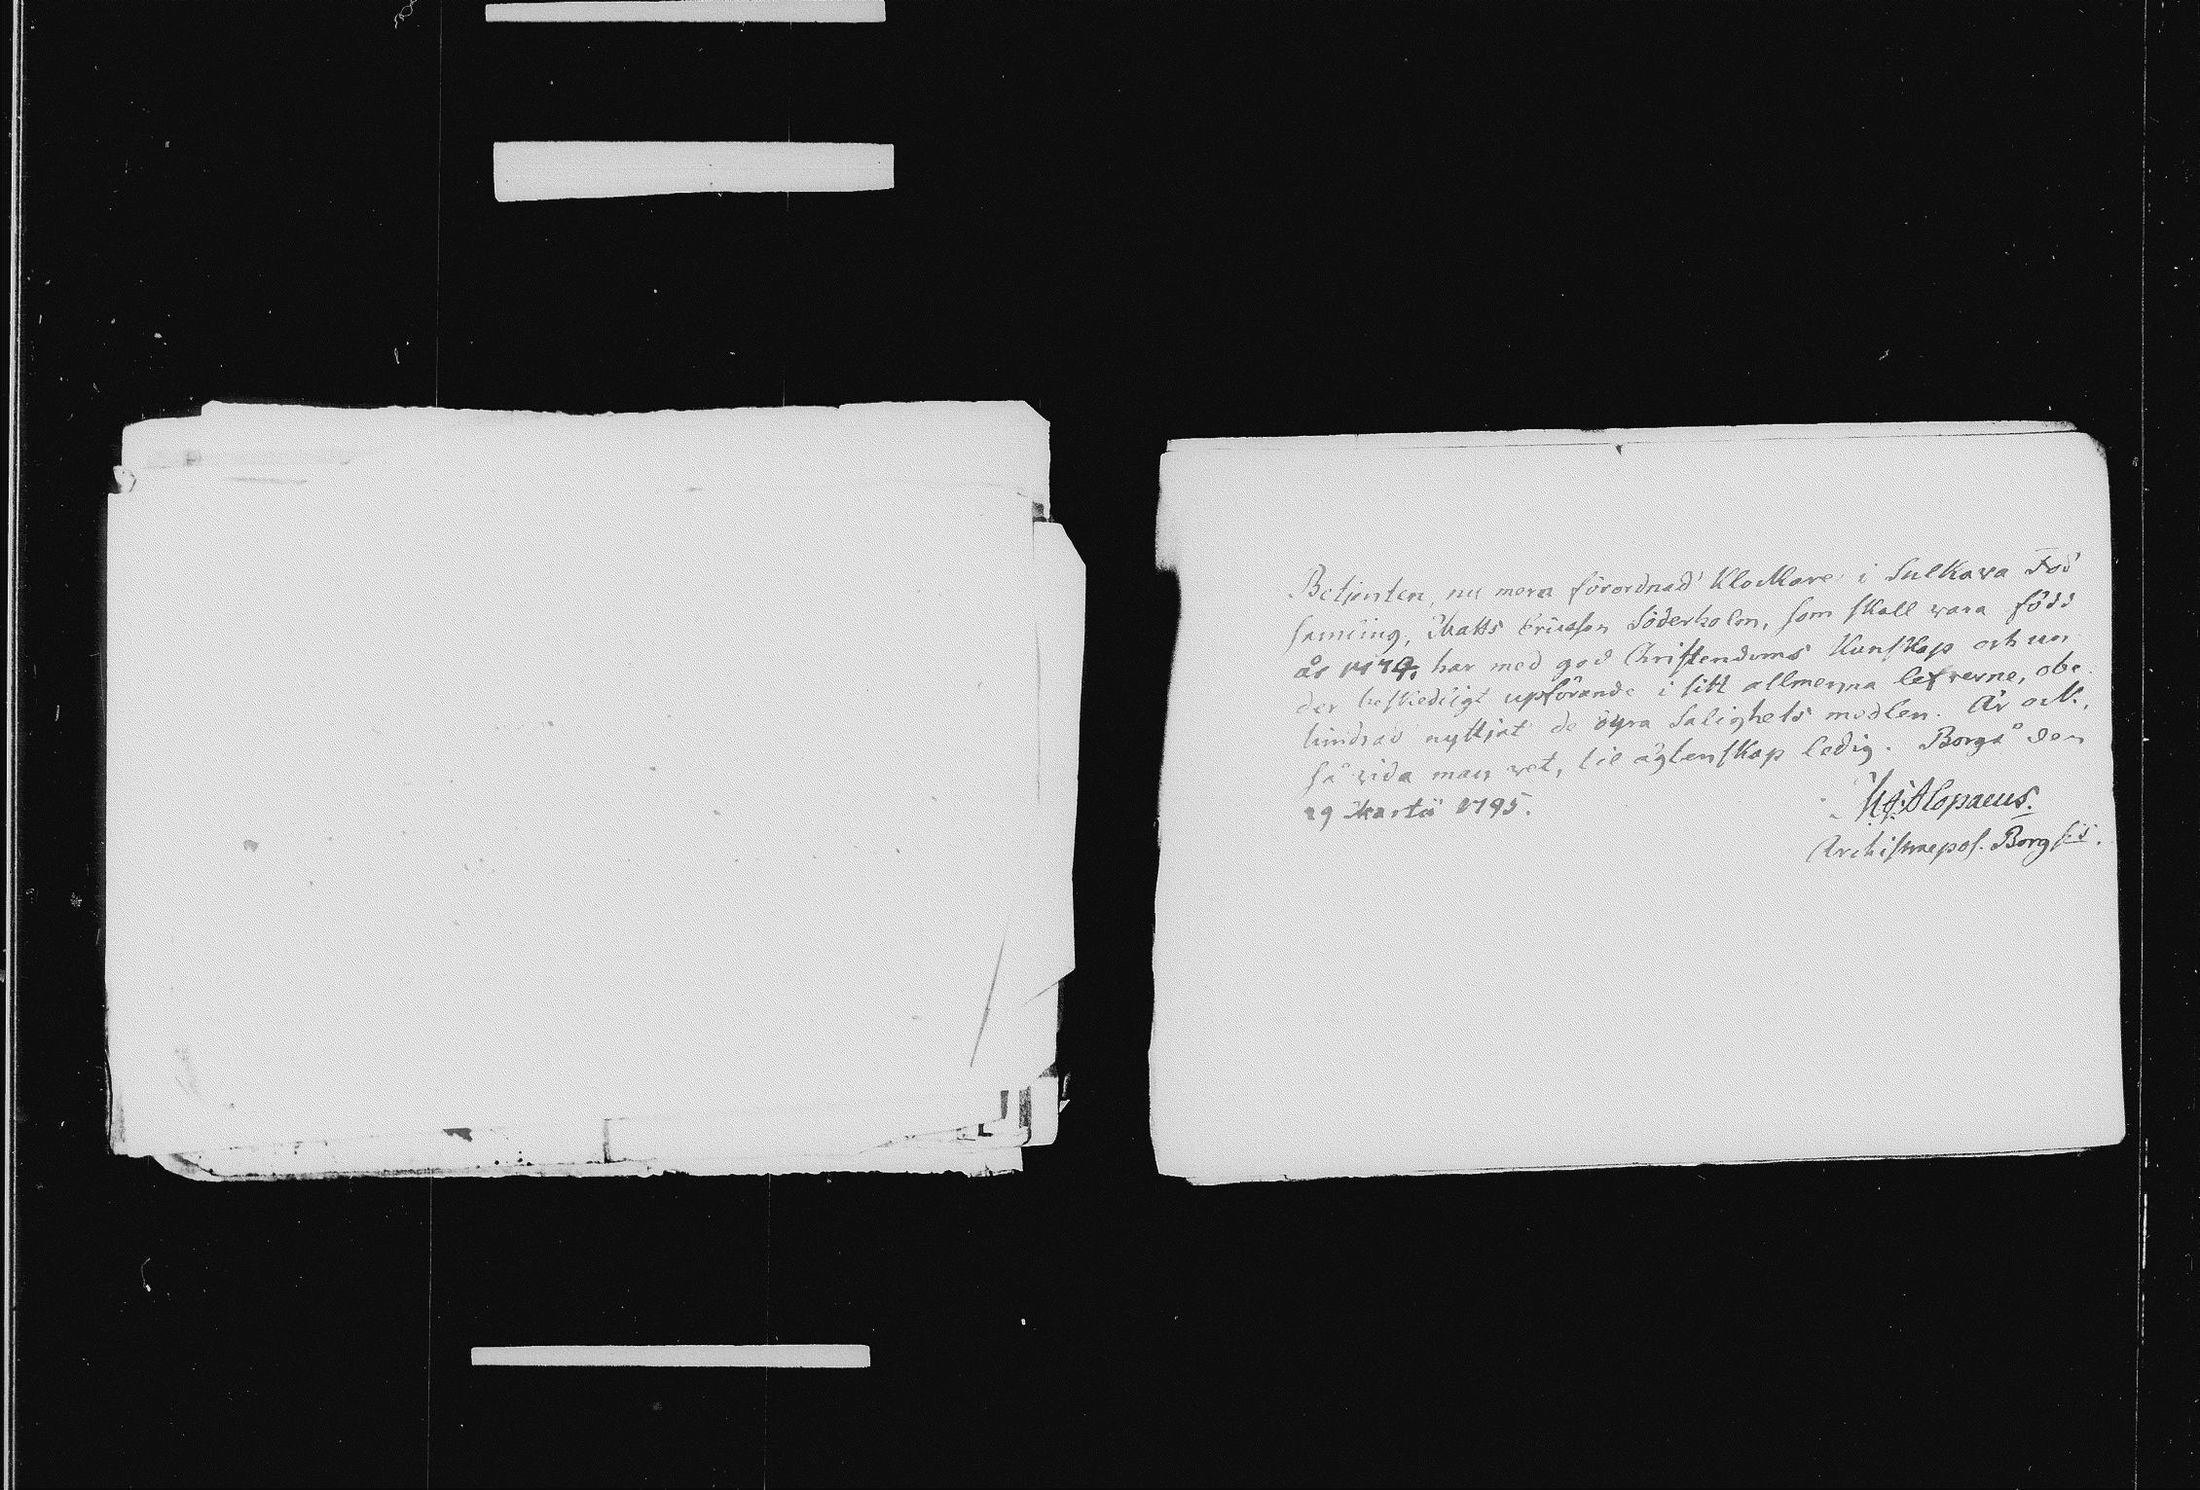 Betjenten, nu mera förordnad Klockare i Sulkava Föd
samling, Matts Ericsson Söderholm, som skall vara född
år 1774, har med god Christendoms Kunskap och un
der beskedligt upförande i sitt allmenna lefverne, obe
hindrad nyttjat de dyra Salighets medlen. Är ock,
så vida man vet, til ägtenskap ledig. Borgå den
29 Martii 1795.
M. J. Alopaeus.
Archi Borgsis.